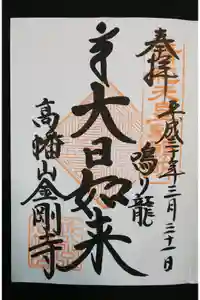 奉拝
平成二十年三月三十一日
鳴り龍
大日如来
高幡山金剛寺